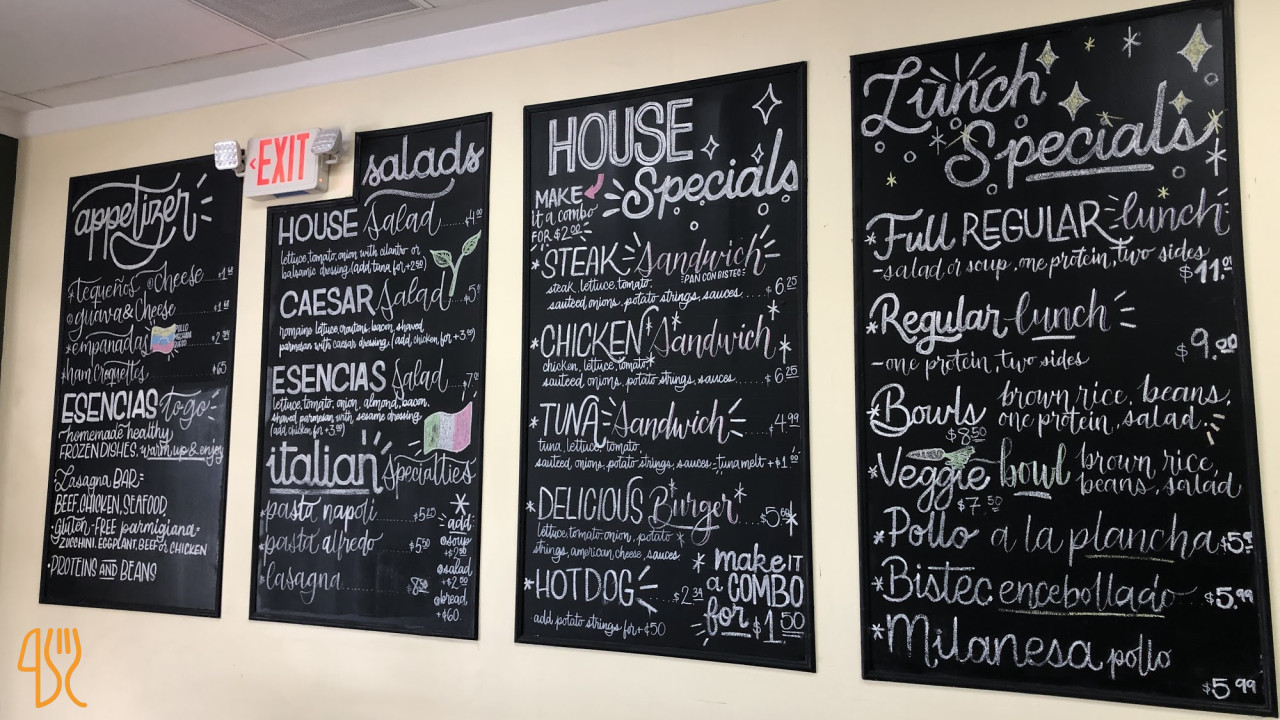 appetizer
*tequeños @Cheese
@guava&Cheese
*empanadas
*ham Croquettes +65
ESENCIAS to go
homemade healthy
FROZEN DISHES, warm up & enjoy
Lasagna BAR=
BEEF, CHICKEN, SEAFOOD,
GLUTEN-FREE parmigiana=
ZUCCHINI, EGGPLANT, BEEF or CHICKEN
*PROTEINS AND BEANS
EXIT
Salads
HOUSE Salad $4.00
lettuce, tomato, onion with cilantro or
balsamic dressing. (add tuna for +2.50)
CAESAR Salad
romaine lettuce, croutons, bacon, shaved
parmesan with caesar dressing. (add, chicken for +3.00)
ESENCIAS Salad
lettuce, tomato, onion, almond, bacon,
shaved parmesan, with sesame dressing.
(add chicken for +3.00)
italian Specialties
*pasta napoli
*pasta alfredo $5.50
*lasagna $8.50
*add
@soup
@salad,
+$2.00
@bread,
+$.60
HOUSE
Specials
MAKE
it a combo
FOR $2.00
*STEAK Sandwich
PAN CON BISTEC
steak, lettuce, tomato,
sauteed onions, potato strings, sauces $6.25
*CHICKEN Sandwich
chicken, lettuce, tomato,
sauteed onions, potato strings, sauces $6.25
*TUNA Sandwich $4.99
tuna, lettuce, tomato,
sauteed onions, potato strings, sauces = tuna melt +$1.00
*DELICIOUS Burger
lettuce, tomato, onion, potato
strings, american, cheese, sauces
*HOTDOG
add potato strings for +$.50
*make IT
a COMBO
for $1.50
Lunch
Specials
*Full REGULAR lunch
-salad or soup, one protein, two sides
*Regular lunch
-one protein, two sides
$9.00
*Bowls brown rice, beans,
one protein, salad
$8.50
*Veggie bowl brown rice,
beans, salad
$7.50
*Pollo a la plancha
*Bistec encebollado $5.99
*Milanesa pollo
$5.99